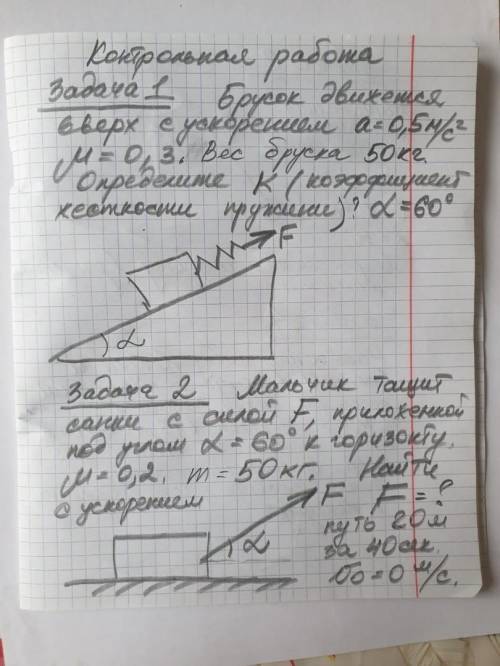 Контрольная работа
Задача 1 Брусок движется
вверх с ускорением a=0,5м/с²
μ=0,3. Вес бруска 50кг.
Определите K (коэффициент
жесткости пружины)? α=60°
F
α
Задача 2 Мальчик тащит
санки с силой F, приложенной
под углом α=60° к горизонту.
μ=0,2. m=50кг. Найти
с ускорением F F=?
α путь 20м
за 40сек.
υ₀=0 м/с.